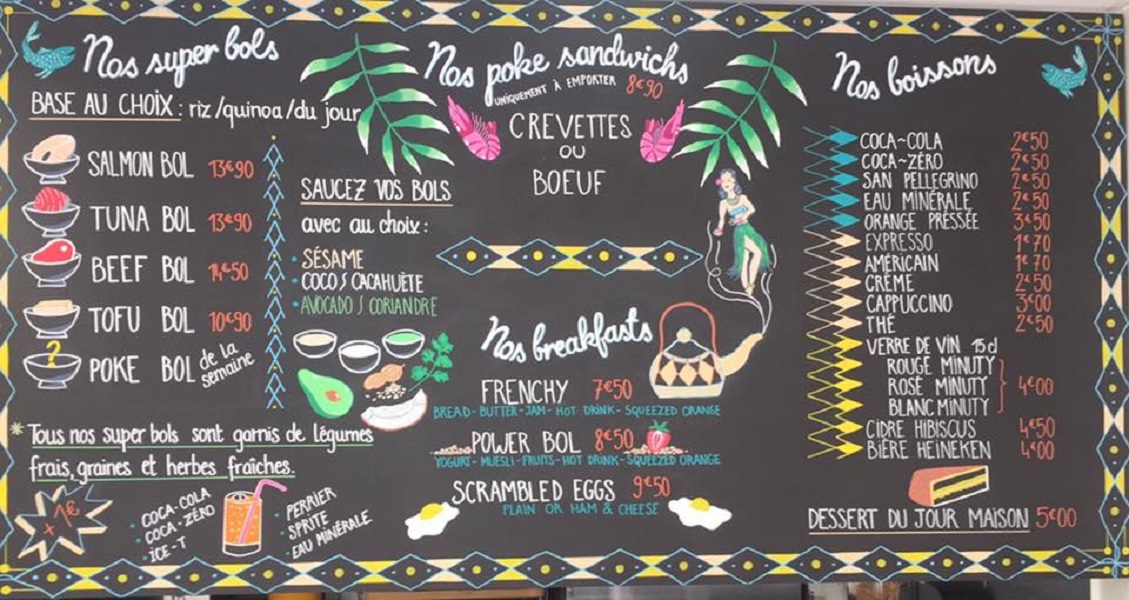 Nos super bols
BASE AU CHOIX : riz /quinoa /du jour
SALMON BOL 13€90
TUNA BOL 13€90
BEEF BOL 14€50
TOFU BOL 10€90
POKE BOL de la semaine
* Tous nos super bols sont garnis de légumes
frais, graines et herbes fraîches.
+ 1€
• COCA-COLA
• COCA-ZÉRO
• ICE-T
• PERRIER
• SPRITE
• EAU MINÉRALE
SAUCEZ VOS BOLS
avec au choix :
• SÉSAME
• COCO / CACAHUÈTE
• AVOCADO / CORIANDRE
Nos poke sandwichs
UNIQUEMENT À EMPORTER 8€90
CREVETTES
OU
BOEUF
Nos breakfasts
FRENCHY 7€50
BREAD - BUTTER - JAM - HOT DRINK - SQUEEZED ORANGE
POWER BOL 8€50
YOGURT - MUESLI - FRUITS - HOT DRINK - SQUEEZED ORANGE
SCRAMBLED EGGS 9€50
PLAIN OR HAM & CHEESE
Nos boissons
COCA~COLA 2€50
COCA~ZÉRO 2€50
SAN PELLEGRINO 2€50
EAU MINÉRALE 2€50
ORANGE PRÉSSÉE 3€50
EXPRESSO 1€70
AMÉRICAIN 1€70
CRÈME 2€50
CAPPUCCINO 3€00
THÉ 2€50
VERRE DE VIN 15 cl
ROUGE MINUTY
ROSÉ MINUTY 4€00
BLANC MINUTY
CIDRE HIBISCUS 4€50
BIÈRE HEINEKEN 4€00
DESSERT DU JOUR MAISON 5€00